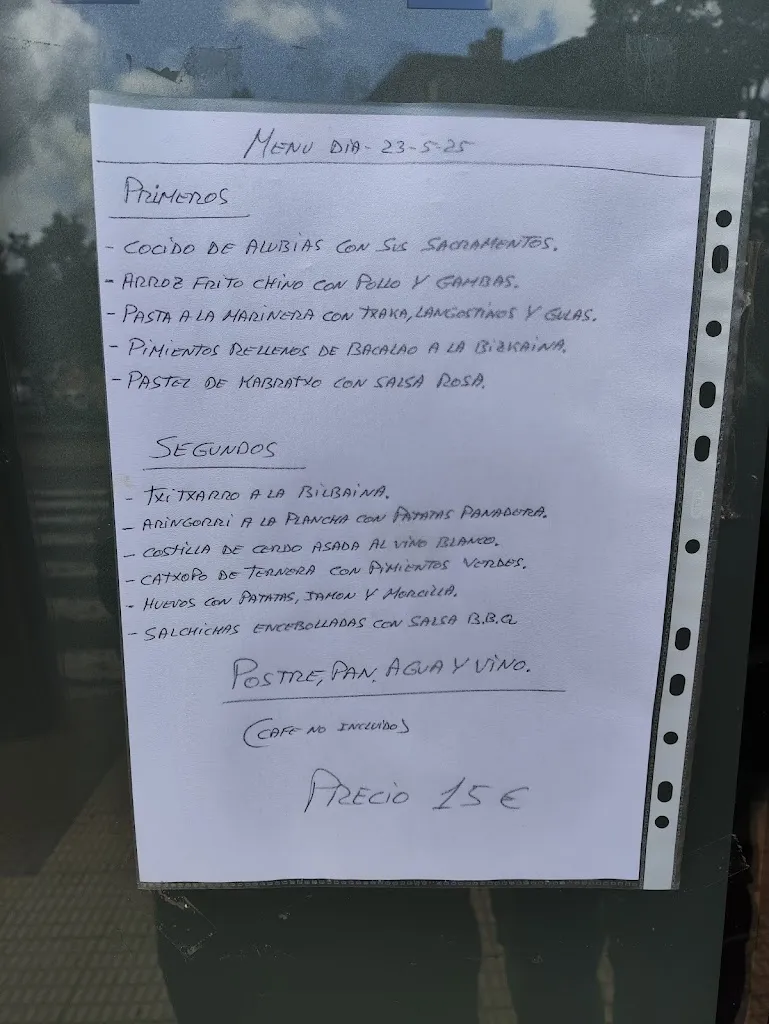 MENU DIA- 23-5-25
PRIMEROS
- COCIDO DE ALUBIAS CON SUS SACRAMENTOS.
- ARROZ FRITO CHINO CON POLLO Y GAMBAS.
- PASTA A LA MARINERA CON TXAKA, LANGOSTINOS Y GULAS.
- PIMIENTOS RELLENOS DE BACALAO A LA BIZKAINA.
- PASTEL DE KABRATXO CON SALSA ROSA.
SEGUNDOS
- TXITXARRO A LA BILBAINA.
- ARINGORRI A LA PLANCHA CON PATATAS PANADERA.
- COSTILLA DE CERDO ASADA AL VINO BLANCO.
- CATXOPO DE TERNERA CON PIMIENTOS VERDES.
- HUEVOS CON PATATAS, JAMON Y MORCILLA.
- SALCHICHAS ENCEBOLLADAS CON SALSA B.B.Q
POSTRE, PAN, AGUA Y VINO.
(CAFE NO INCLUIDO)
PRECIO 15 €